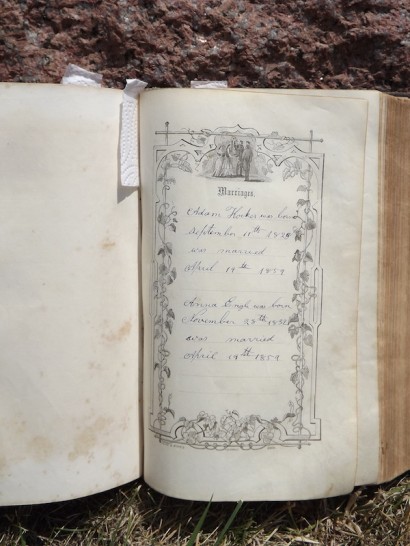 Marriages.
Adam was born
September 11th
was married
April 19th 1859
Anna was born
November 28th
was married
April 19th 1859